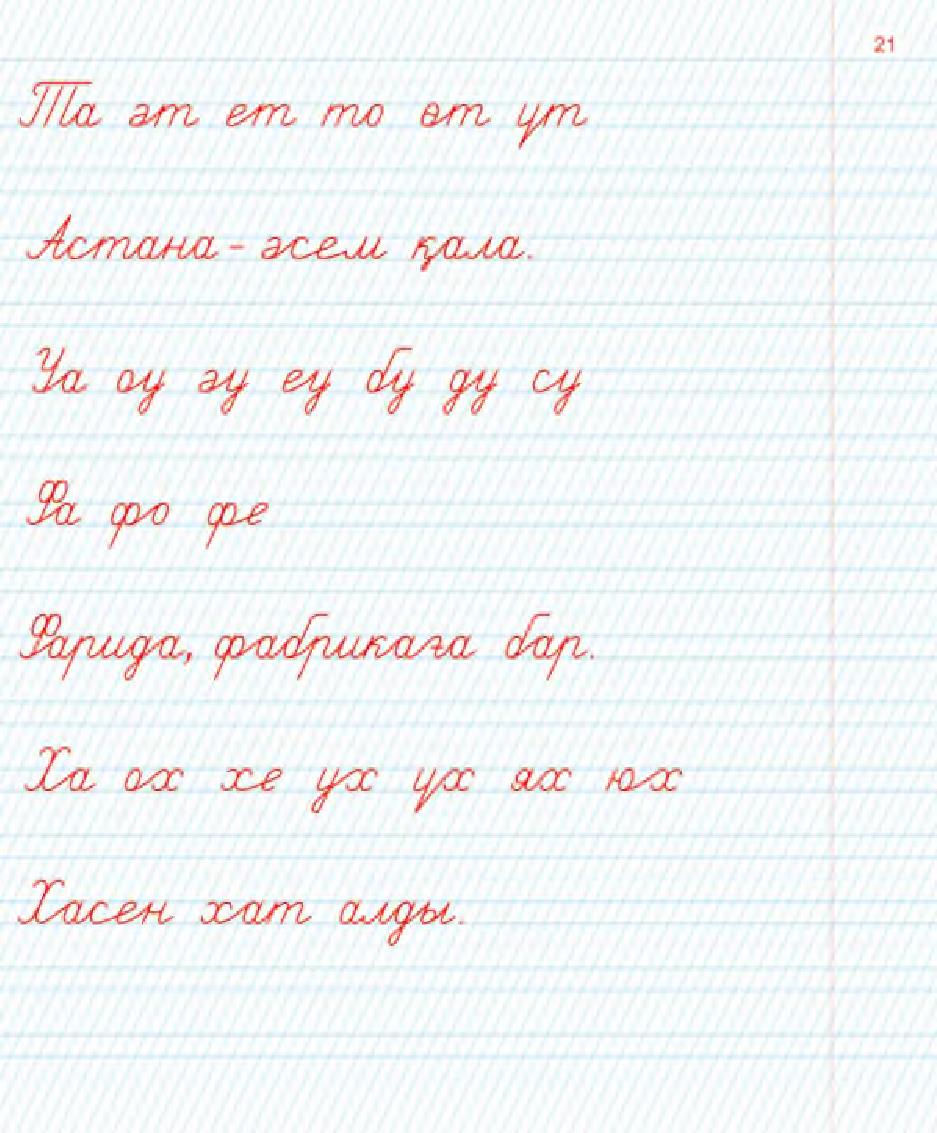 21
Та әт ет то өт үт
Астана - әсем қала.
Уа оу әу еу бу ду су
Фа фо фе
Фарида, фабрикаға бар.
Ха ох хе ух үх ях юх
Хасен хат алды.